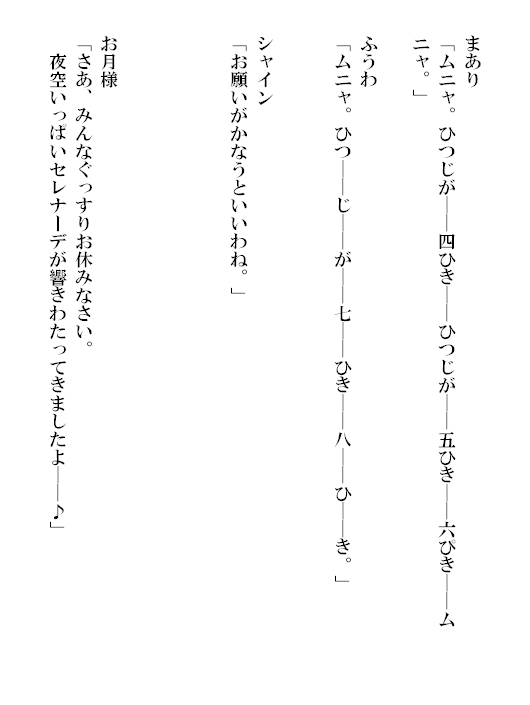 まあり
「ムニャ。ひつじが――四ひき――ひつじが――五ひき――六ぴき――ム
ニャ。」
ふうわ
「ムニャ。ひつ――じ――が――七――ひき――八――ひ――き。」
シャイン
「お願いがかなうといいわね。」
お月様
「さあ、みんなぐっすりお休みなさい。
夜空いっぱいセレナーデが響きわたってきましたよ――♪」